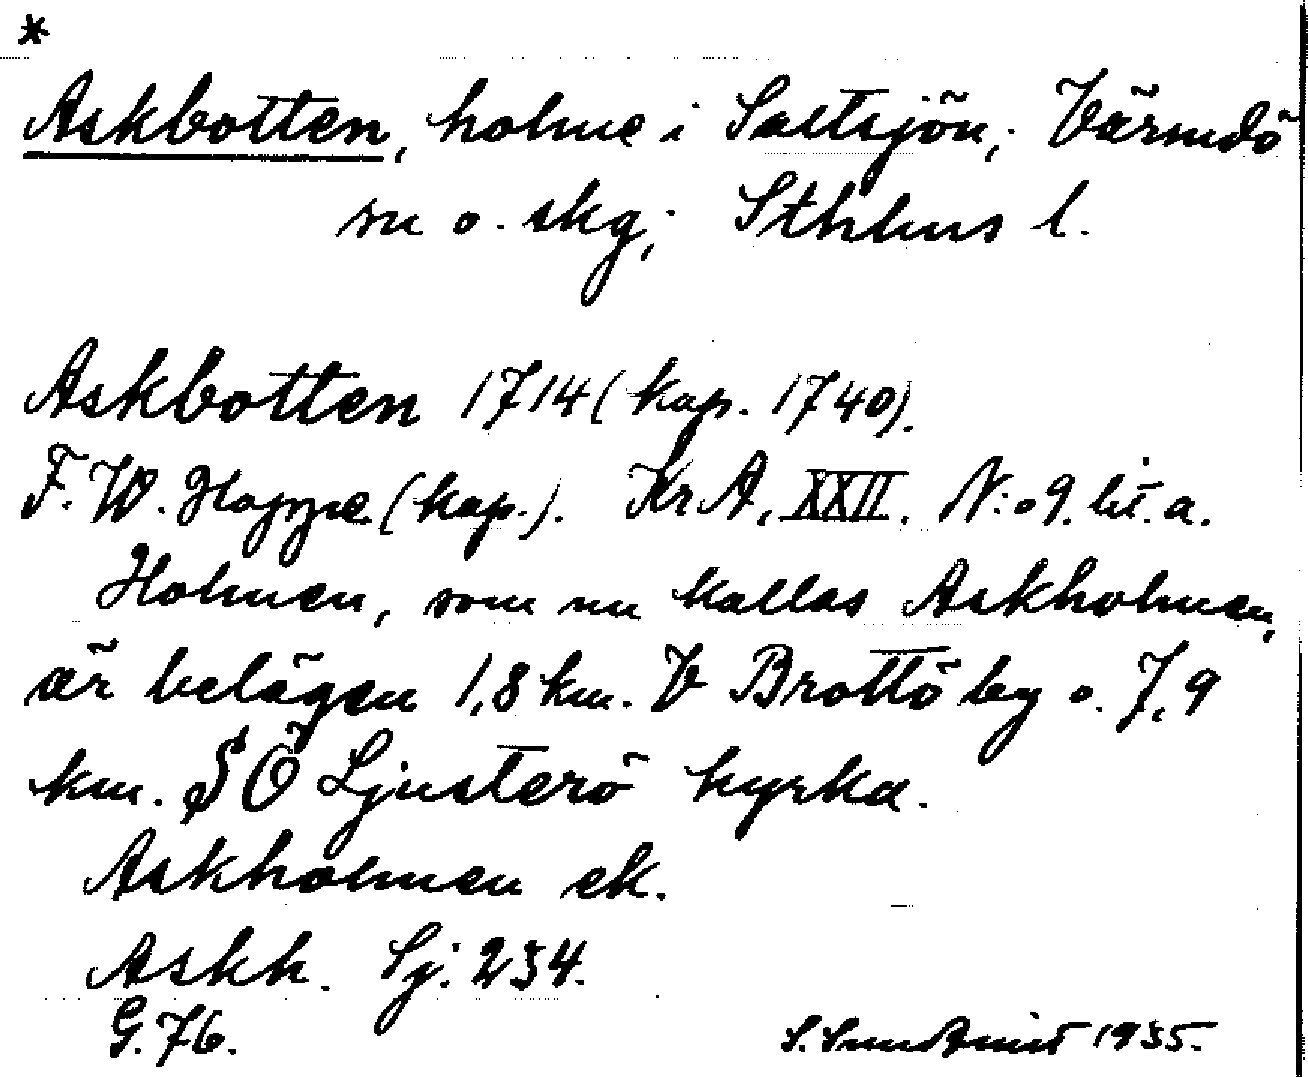 *
Askbotten, holme i Saltsjön; Värmdö
sn o. skg; Sthlms l.
Askbotten 1714 (kap. 1740).
F. W. Hoppe (kap.). KrA, XXII. N:o 9. lit. a.
Holmen, som nu kallas Askholmen,
är belägen 1,8 km. V Brottö by o. 7,9
km. SÖ Ljusterö kyrka.
Askholmen ek.
Askh. Sj. 234.
G. 76.
S. Sundqvist 1935.